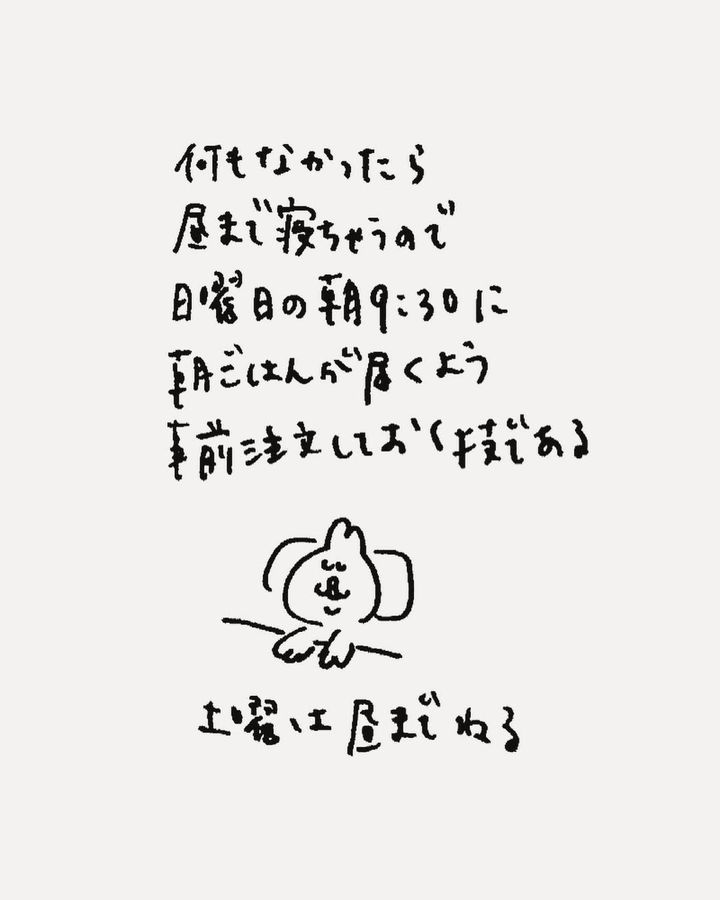 何もなかったら
昼まで寝ちゃうので
日曜日の朝9:30に
朝ごはんが届くよう
事前注文しておく技である
土曜は昼までねる